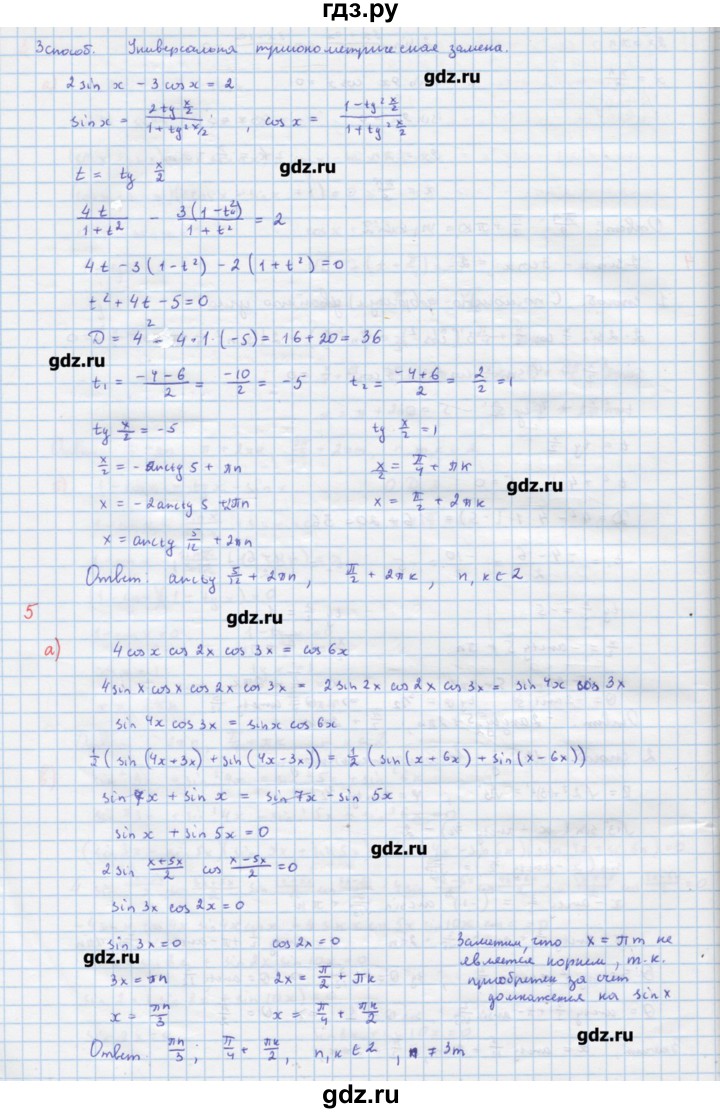 гдз.ру
3 способ. Универсальная тригонометрическая замена.
gdz.ru
2 sin x − 3 cos x = 2
sin x = 2 tg x/2 / 1 + tg² x/2 , cos x = 1 − tg² x/2 / 1 + tg² x/2
gdz.ru
t = tg x/2
4t / 1 + t² − 3(1 − t²) / 1 + t² = 2
4t − 3(1 − t²) − 2(1 + t²) = 0
t² + 4t − 5 = 0
D = 4² − 4 · 1 · (−5) = 16 + 20 = 36
gdz.ru
t₁ = −4 − 6 / 2 = −10 / 2 = −5 t₂ = −4 + 6 / 2 = 2 / 2 = 1
tg x/2 = −5 tg x/2 = 1
x/2 = − arctg 5 + πn x/2 = π/4 + πk
gdz.ru
x = −2arctg 5 + 2πn x = π/2 + 2πk
x = arctg 5/12 + 2πn
Ответ: arctg 5/12 + 2πn , π/2 + 2πk , n, k ∈ Z
5
gdz.ru
а) 4 cos x cos 2x cos 3x = cos 6x
4 sin x cos x cos 2x cos 3x = 2 sin 2x cos 2x cos 3x = sin 4x cos 3x
sin 4x cos 3x = sin x cos 6x
1/2 (sin(4x + 3x) + sin(4x − 3x)) = 1/2 (sin(x + 6x) + sin(x − 6x))
sin 7x + sin x = sin 7x − sin 5x
sin x + sin 5x = 0
gdz.ru
2 sin x + 5x / 2 cos x − 5x / 2 = 0
sin 3x cos 2x = 0
sin 3x = 0 cos 2x = 0
gdz.ru
3x = πn 2x = π/2 + πk
x = πn/3 x = π/4 + πk/2
Заметим, что x = πm не
является корнем, т.к.
приобретен за счет
домножения на sin x
gdz.ru
Ответ πn/3 ; π/4 + πk/2 , n, k ∈ Z , n ≠ 3m
gdz.ru